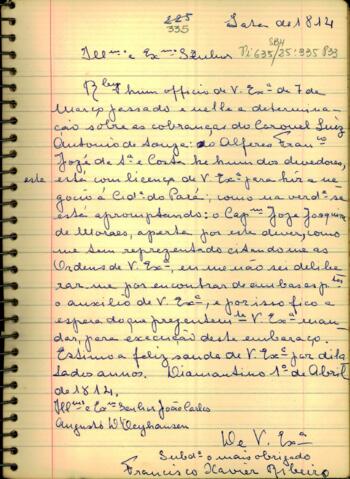 225
335
Sara de 1814
SBH
Pi 635/25:335 P33
Illmo e Exmo Senhor
Rby hum officio de V. Exa de 7 de
Março passado e nelle a determina-
ção sobre as cobranças do Coronel Luiz
Antonio de Souza: do Alferes Franco
Jozé de Sa e Costa he hum dos devedores,
este
está com licença de V. Exa para hir a ne-
gocio á Cide do Pará; como na verde se
está aprouptando: o Capmo Joze Joaquim
de Moraes, aperta por este dever, como
me tem reprezentado citando me as
Ordens de V. Exa, eu me não sei delibe-
rar me por encontrar de embas ptes
o auxilio de V. Exa, e por isso fico a
espera do que prezentemte V. Exa man-
dar, para execução deste embaraço.
Estimo a feliz saude de V. Exa por dila-
tados annos. Diamantino 1o de Abril
de 1814.
Illmo e Exmo Senhor João Carlos
Augusto D'Oeynhausen
De V. Exa
Subdo o mais obrigado
Francisco Xavier Ribeiro